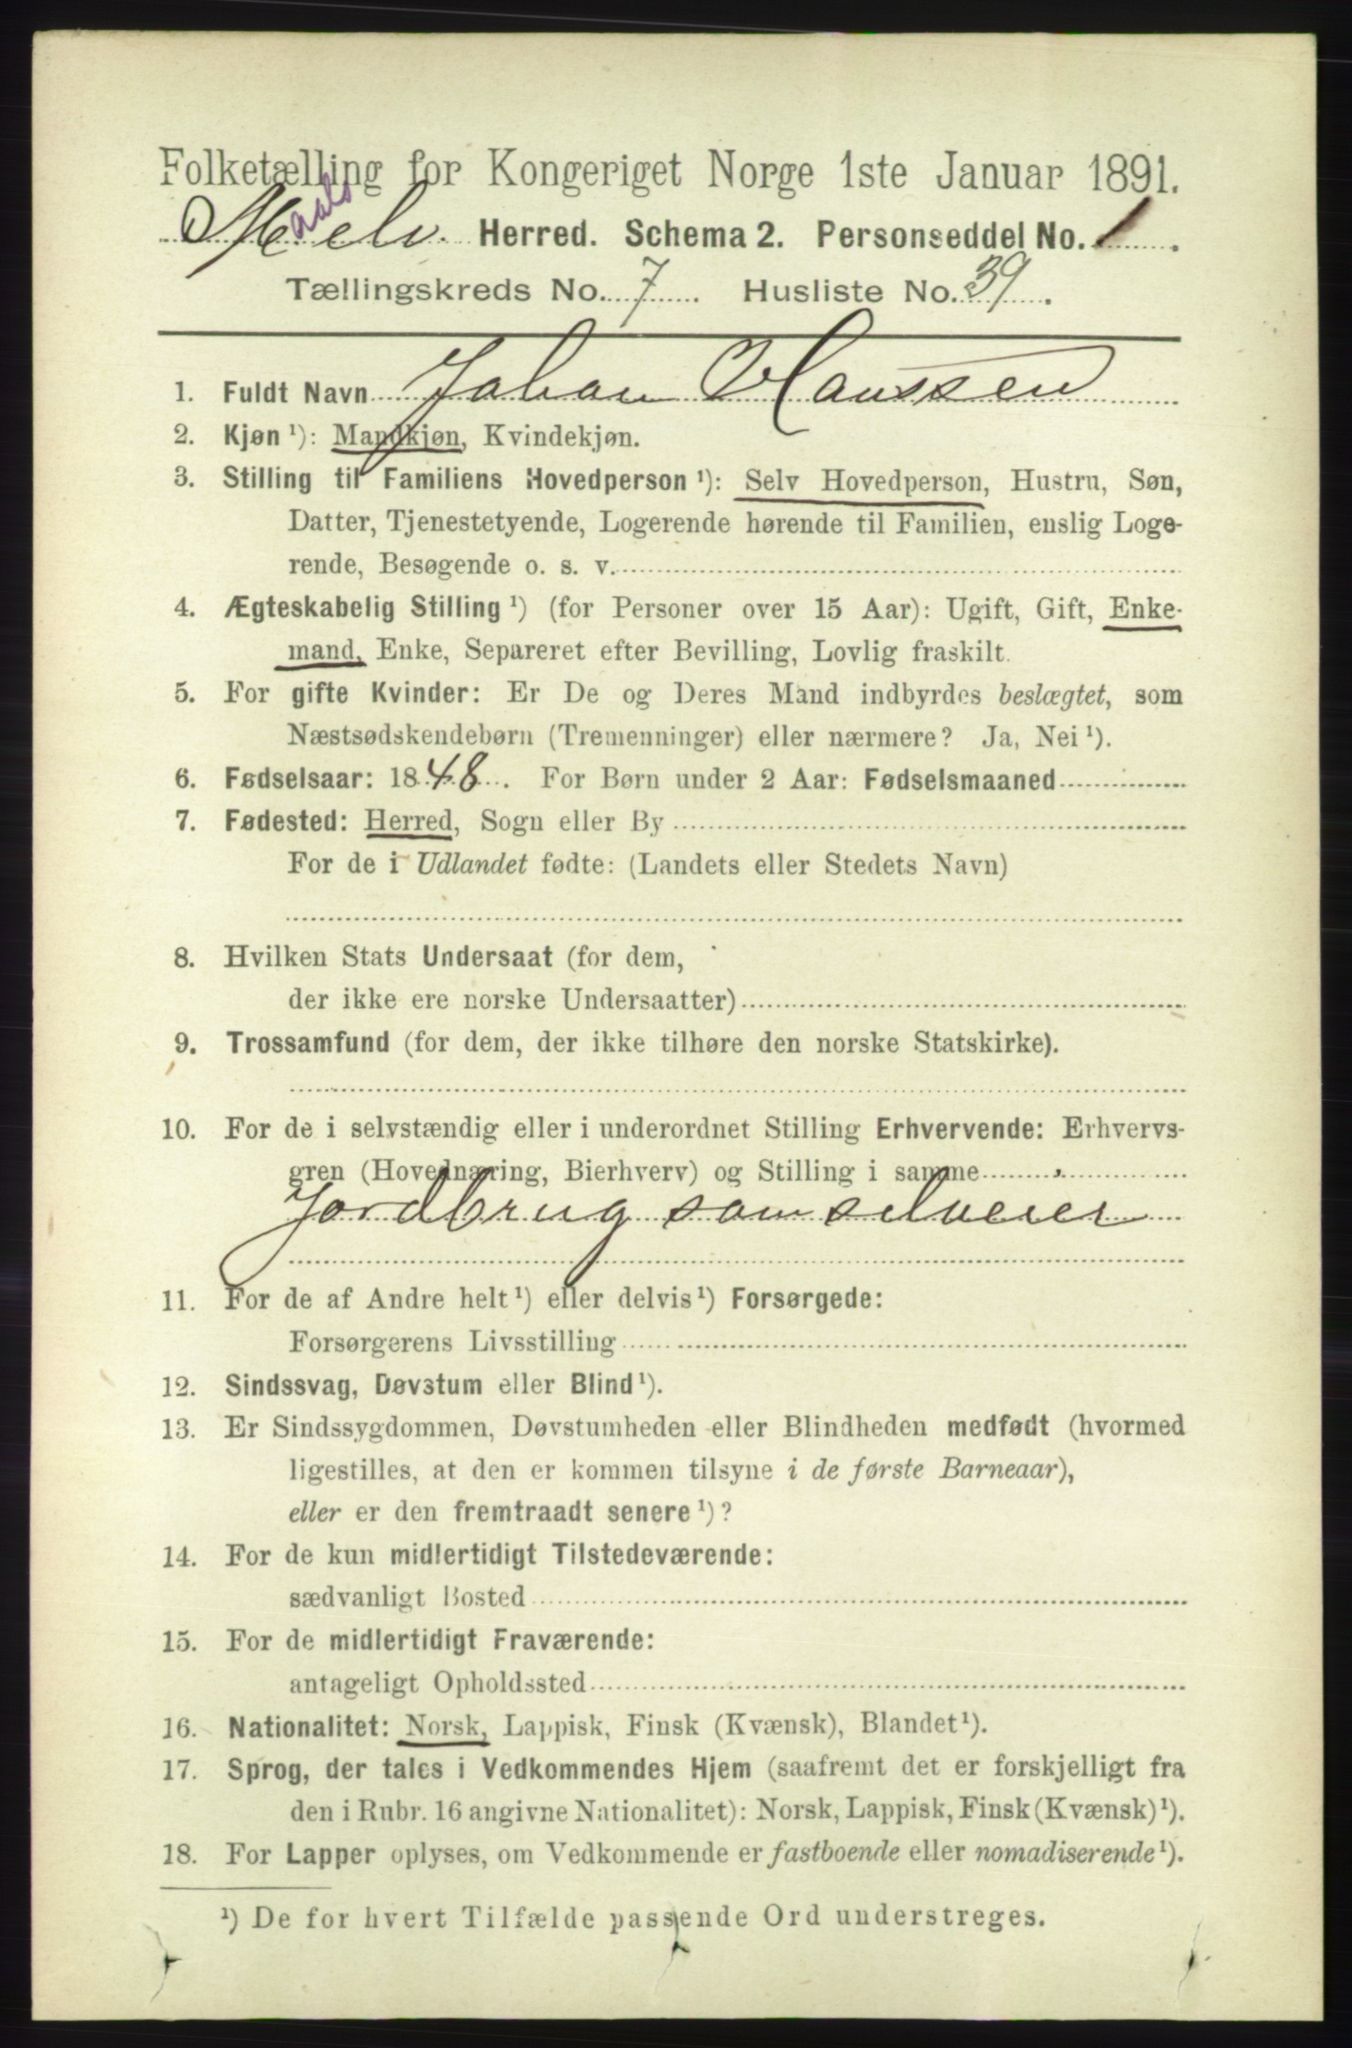 Folketælling for Kongeriget Norge 1ste Januar 1891.
Maalselv Herred. Schema 2. Personseddel No. 1.
Tællingskreds No. 7. Husliste No. 39.
1. Fuldt Navn Johan Hanssen
2. Kjøn ¹): Mandkjøn, Kvindekjøn.
3. Stilling til Familiens Hovedperson ¹): Selv Hovedperson, Hustru, Søn,
Datter, Tjenestetyende, Logerende hørende til Familien, enslig Loge-
rende, Besøgende o. s. v.
4. Ægteskabelig Stilling ¹) (for Personer over 15 Aar): Ugift, Gift, Enke-
mand, Enke, Separeret efter Bevilling, Lovlig fraskilt.
5. For gifte Kvinder: Er De og Deres Mand indbyrdes beslægtet, som
Næstsødskendebørn (Tremenninger) eller nærmere? Ja, Nei ¹).
6. Fødselsaar: 1848. For Børn under 2 Aar: Fødselsmaaned
7. Fødested: Herred, Sogn eller By
For de i Udlandet fødte: (Landets eller Stedets Navn)
8. Hvilken Stats Undersaat (for dem,
der ikke ere norske Undersaatter)
9. Trossamfund (for dem, der ikke tilhøre den norske Statskirke).
10. For de i selvstændig eller i underordnet Stilling Erhvervende: Erhvervs-
gren (Hovednæring, Bierhverv) og Stilling i samme
Jordbrug som selveier
11. For de af Andre helt ¹) eller delvis ¹) Forsørgede:
Forsørgerens Livsstilling
12. Sindssvag, Døvstum eller Blind ¹).
13. Er Sindssygdommen, Døvstumheden eller Blindheden medfødt (hvormed
ligestilles, at den er kommen tilsyne i de første Barneaar),
eller er den fremtraadt senere ¹)?
14. For de kun midlertidigt Tilstedeværende:
sædvanligt Bosted
15. For de midlertidigt Fraværende:
antageligt Opholdssted
16. Nationalitet: Norsk, Lappisk, Finsk (Kvænsk), Blandet ¹).
17. Sprog, der tales i Vedkommendes Hjem (saafremt det er forskjelligt fra
den i Rubr. 16 angivne Nationalitet): Norsk, Lappisk, Finsk (Kvænsk) ¹).
18. For Lapper oplyses, om Vedkommende er fastboende eller nomadiserende ¹).
¹) De for hvert Tilfælde passende Ord understreges.